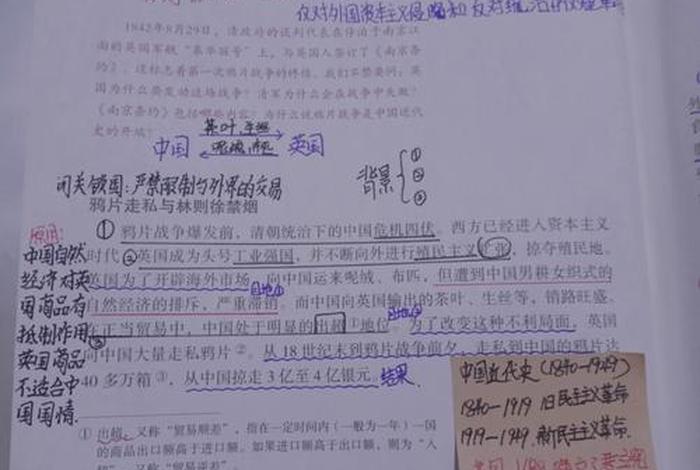 仅对外国资本主义侵略和反对
1842年8月29日，清政府的谈判代表在停泊于南京江
面的英国军舰“皋华丽号”上，与英国人签订了《南京条
约》，这标志着第一次鸦片战争的终结。我们不禁要问：英
国为什么要发动这场战争？清军为什么会在战争中失败？
《南京条约》包括哪些内容？为什么说鸦片战争是中国近代
史的开端？
茶叶、生丝
中国 英国
呢绒、布匹
闭关锁国：严禁限制与外界的交易
背景 ① ② ③
鸦片走私与林则徐禁烟
①鸦片战争爆发前，清朝统治下的中国危机四伏。西方已经进入资本主义
时代②英国成为头号工业强国，并不断向外进行殖民主义扩张，掠夺殖民地。
英国为了开辟海外市场，向中国运来呢绒、布匹，但遭到中国男耕女织式的
目的①
自然经济的排斥，严重滞销。而中国向英国输出的茶叶、生丝等，销路旺盛。
目的②
在正当贸易中，中国处于明显的出超①地位。为了改变这种不利局面，英国
③
向中国大量走私鸦片②。从18世纪末到鸦片战争前夕，走私到中国的鸦片达
40多万箱③，从中国掠走3亿至4亿银元。结果
原因：
中国自然
经济对英
国商品有
抵制作用
英国商品
不适合中
国国情.
中国近代史（1840—1949）
1840—1919 旧民主主义革命
1919—1949 新民主主义革命.
①出超，又称“贸易顺差”，指在一定时间内（一般为一年）一国
的商品出口额高于进口额。如果进口额高于出口额，则为“入
超”，又称“贸易逆差”。